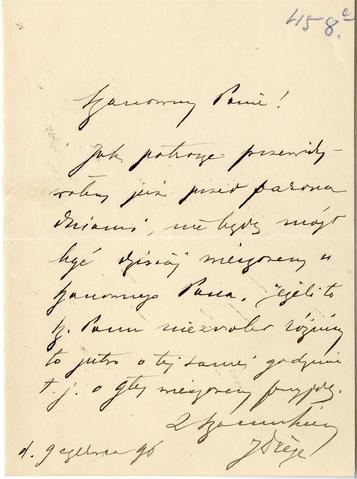 458.e
Szanowny Panie!
Jak potroze przewidy-
wałem już przed paroma
dniami, nie będę mógł
być dzisiaj wieczorem u
Szanownego Pana. Jeżeli to
Sz. Panu nie zrobi różnicy
to jutro o tej samej godzinie
t. j. o 9tej wieczorem przyjdę.
Z szacunkiem
d. 9 czerwca 96